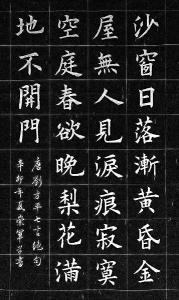 沙窗日落漸黃昏金
屋無人見淚痕寂寞
空庭春欲晚梨花滿
地不開門
唐劉方平七言絕句
辛卯年夏